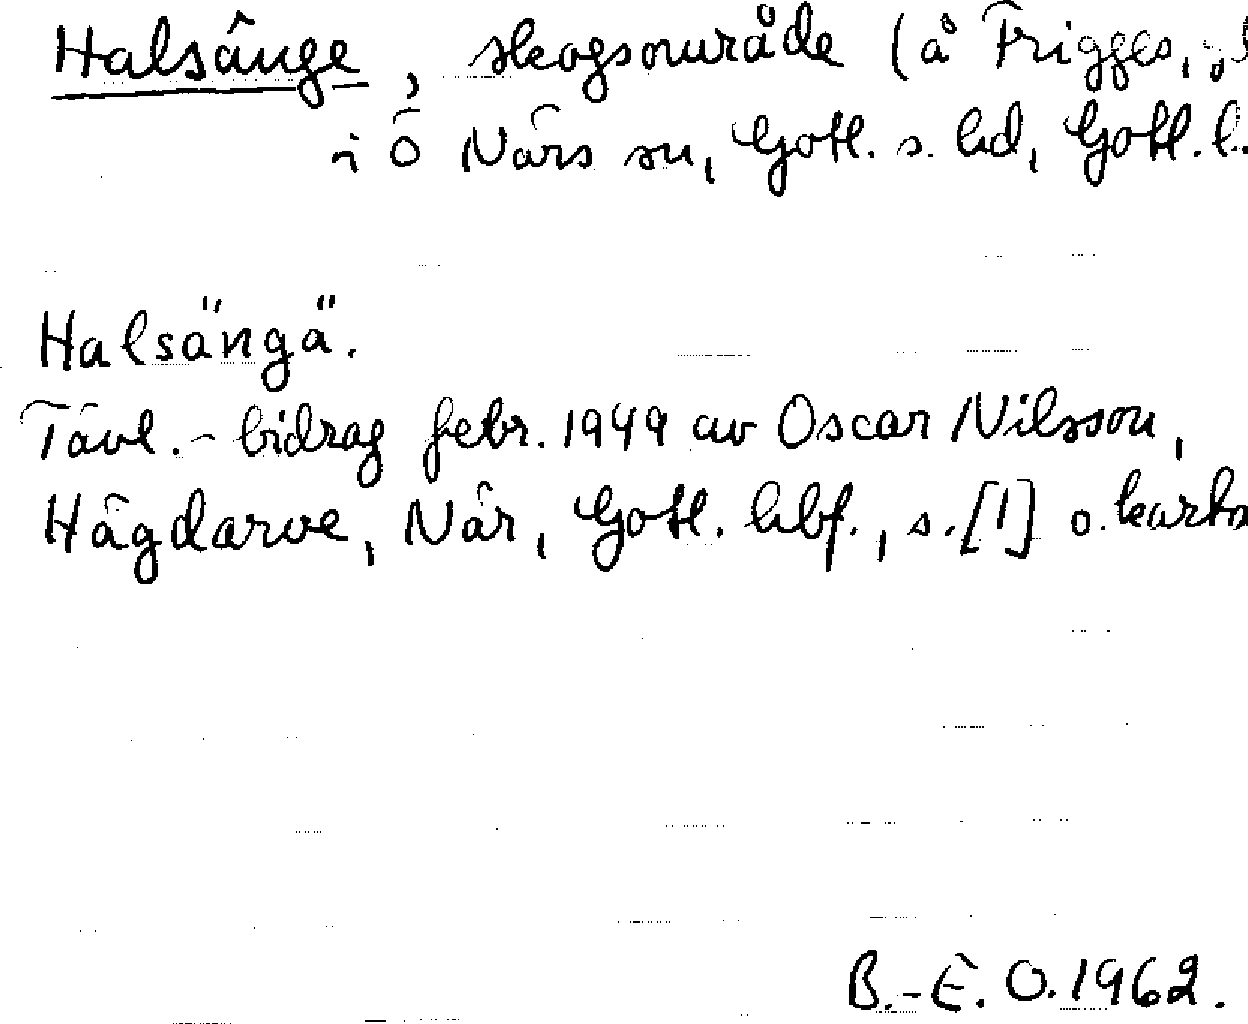 Halsänge, skogsområde (å Frigges,
i Ö När s sn, Gotl. s. hd, Gotl. l.
Halsängä.
Tävl.-bidrag febr. 1949 av Oscar Nilsson,
Hägdarve, När, Gotl. hbf., s. [1] o. karta
B.-E. O. 1962.